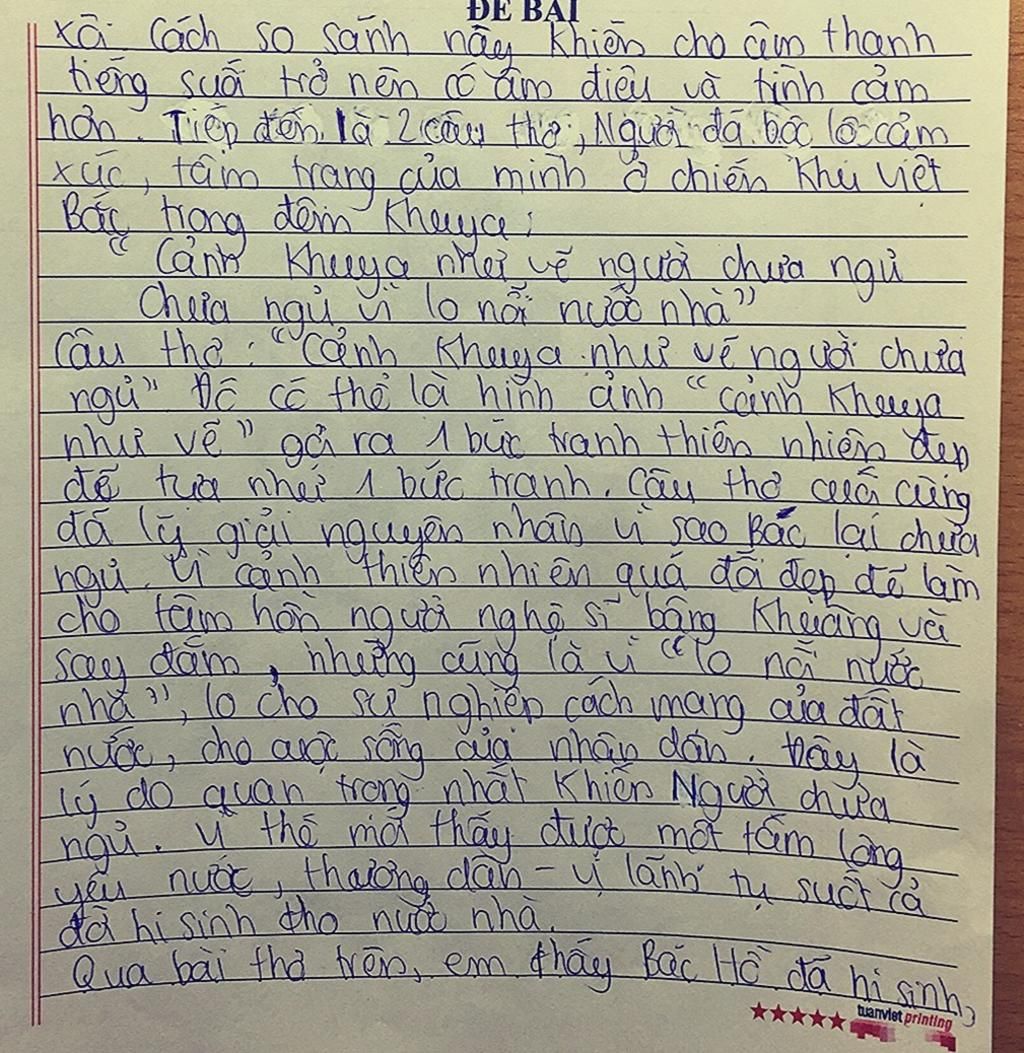 ĐỀ BÀI
xôi. Cách so sánh này khiến cho âm thanh
tiếng suối trở nên có âm điệu và tình cảm
hơn. Tiếp đến là 2 câu thơ, Người đã bộc lộ cảm
xúc, tâm trạng của mình ở chiến khu Việt
Bắc trong đêm khuya:
"Cảnh khuya như vẽ người chưa ngủ
Chưa ngủ vì lo nỗi nước nhà"
Câu thơ: "Cảnh khuya như vẽ người chưa
ngủ" Đó có thể là hình ảnh "cảnh khuya
như vẽ" gợi ra 1 bức tranh thiên nhiên đẹp
đẽ tựa như 1 bức tranh. Câu thơ cuối cùng
đã lý giải nguyên nhân vì sao Bác lại chưa
ngủ. Vì cảnh thiên nhiên quá đỗi đẹp đẽ làm
cho tâm hồn người nghệ sĩ bâng khuâng và
say đắm, nhưng cũng là vì "lo nỗi nước
nhà", lo cho sự nghiệp cách mạng của đất
nước, cho cuộc sống của nhân dân. Đây là
lý do quan trọng nhất khiến Người chưa
ngủ. Vì thế mới thấy được một tấm lòng
yêu nước, thương dân - vị lãnh tụ suốt cả
đời hi sinh cho nước nhà.
Qua bài thơ trên, em thấy Bác Hồ đã hi sinh,
tuanviet printing